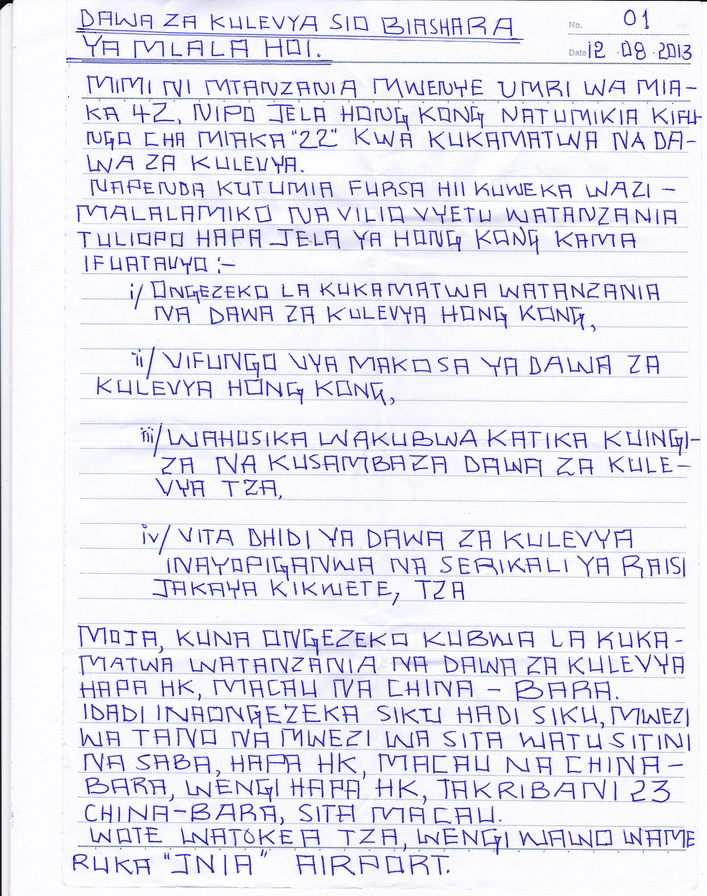 DAWA ZA KULEVYA SIO BIASHARA
No. 01
YA MLALA HOI.
Date 12.08.2013
MIMI NI MTANZANIA MWENYE UMRI WA MIA-
KA 42, NIPO JELA HONG KONG NATUMIKIA KIFU-
NGO CHA MIAKA "22" KWA KUKAMATWA NA DA-
WA ZA KULEVYA.
NAPENDA KUTUMIA FURSA HII KUWEKA WAZI -
MALALAMIKO NA VILIO VYETU WATANZANIA
TULIOPO HAPA JELA YA HONG KONG KAMA
IFUATAVYO :-
i/ ONGEZEKO LA KUKAMATWA WATANZANIA
NA DAWA ZA KULEVYA HONG KONG,
ii/ VIFUNGO VYA MAKOSA YA DAWA ZA
KULEVYA HONG KONG,
iii/ WAHUSIKA WAKUBWA KATIKA KUINGI-
ZA NA KUSAMBAZA DAWA ZA KULE-
VYA TZA,
iv/ VITA DHIDI YA DAWA ZA KULEVYA
INAYOPIGANWA NA SERIKALI YA RAISI
JAKAYA KIKWETE, TZA
MOJA, KUNA ONGEZEKO KUBWA LA KUKA-
MATWA WATANZANIA NA DAWA ZA KULEVYA
HAPA HK, MACAU NA CHINA - BARA.
IDADI INAONGEZEKA SIKU HADI SIKU, MWEZI
WA TANO NA MWEZI WA SITA WATU SITINI
NA SABA, HAPA HK, MACAU NA CHINA-
BARA, WENGI HAPA HK, TAKRIBANI 23
CHINA-BARA, SITA MACAU.
WOTE WATOKEA TZA, WENGI WAWO WAME
RUKA "JNIA" AIRPORT.